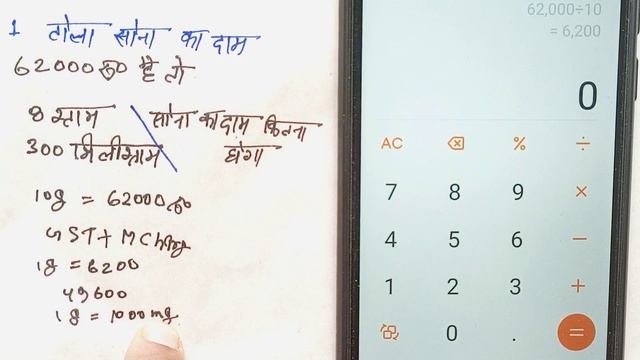 1 तोला सोना का दाम
62000 रु है तो
8 ग्राम सोना का दाम कितना
300 मिलीग्राम होगा
10g = 62000 रु
GST + M Charge
1g = 6200
49600
1g = 1000 mg
62,000÷10
= 6,200
0
AC % ÷
7 8 9 ×
4 5 6 −
1 2 3 +
0 . =